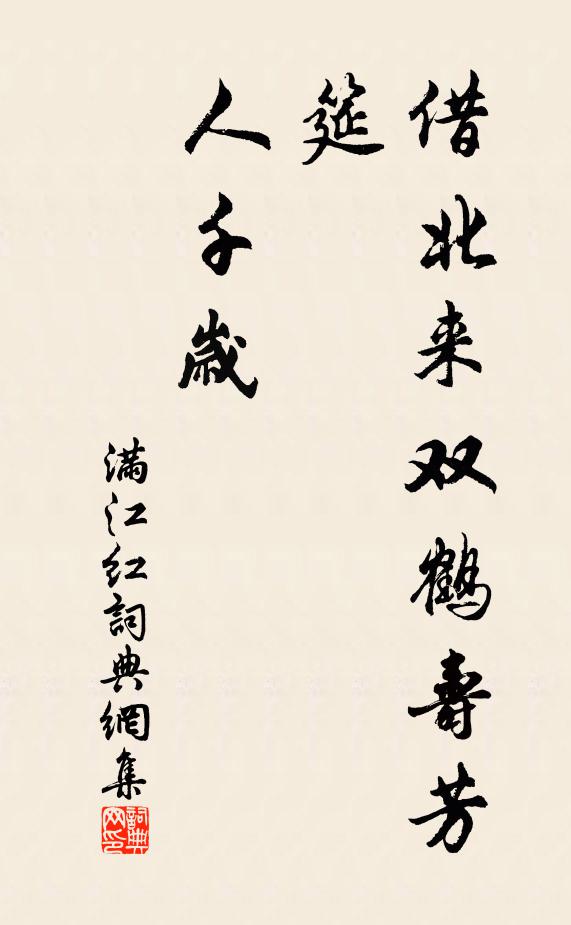 借北来双鹤寿芳
筵
人千歲
满江红詞典網集
詞典
网印